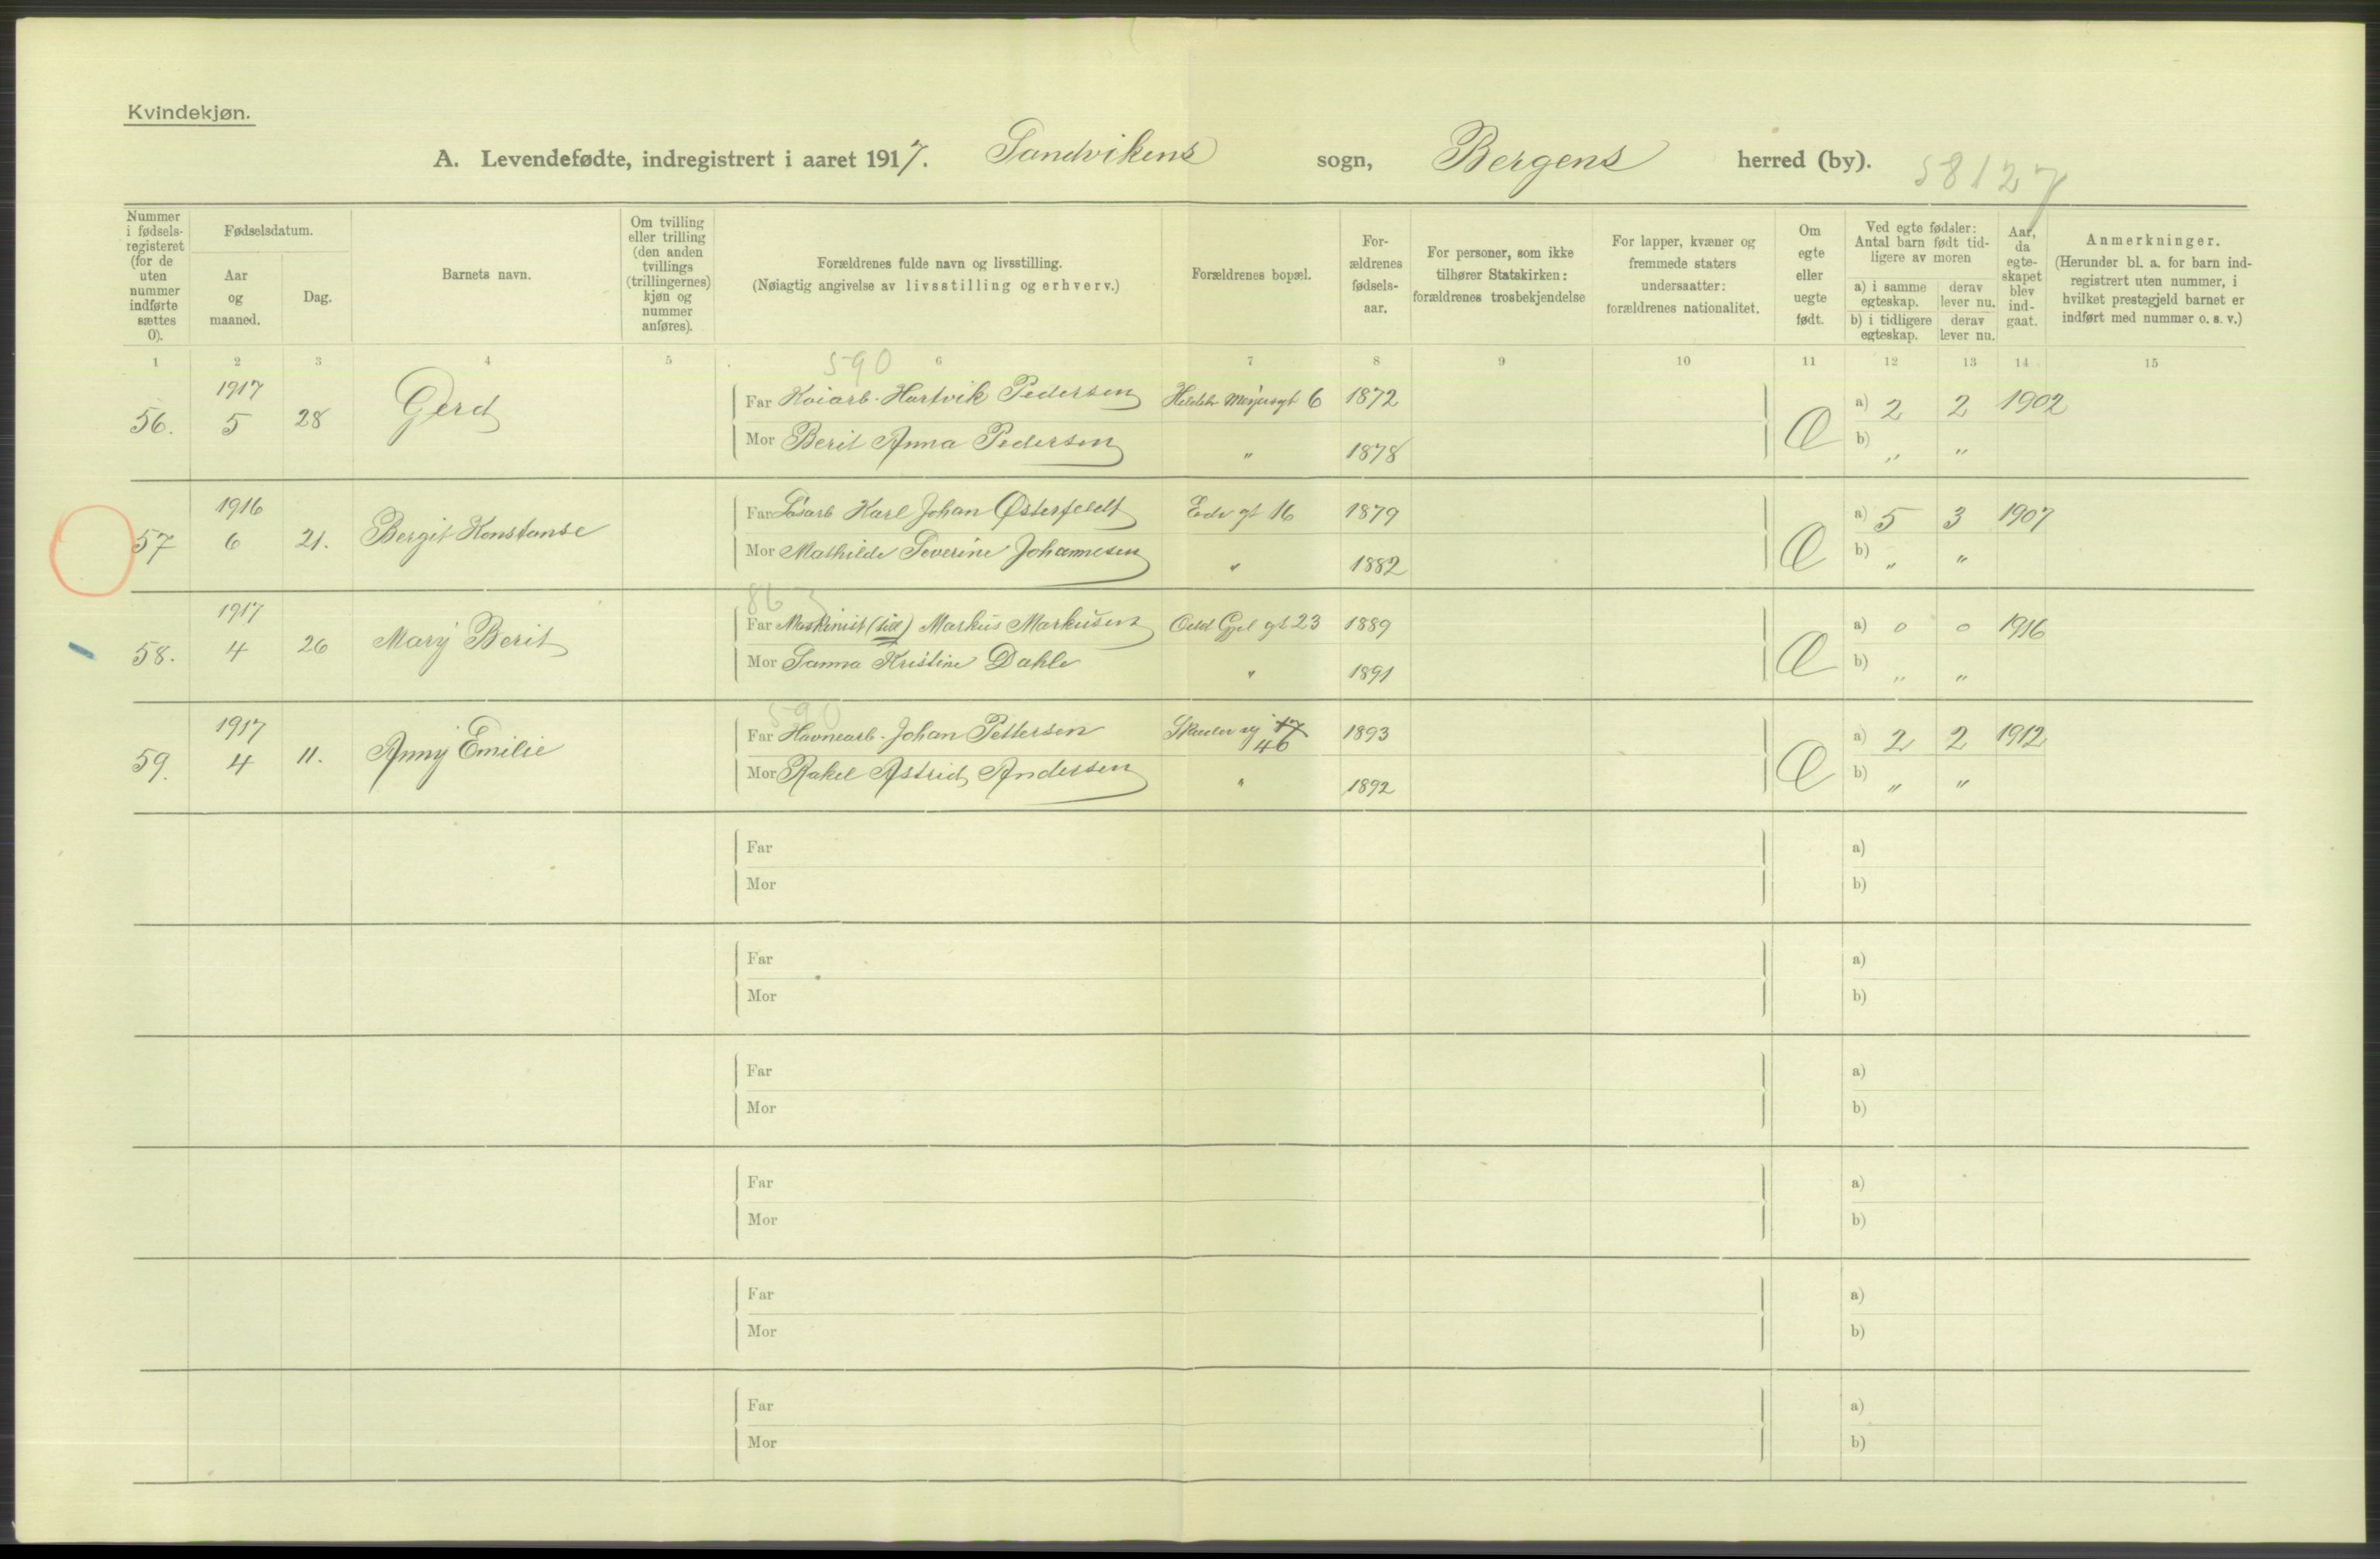 Kvindekjøn.
A. Levendefødte, indregistrert i aaret 1917. Sandvikens sogn, Bergens herred (by).
58127
Nummer i fødsels-registeret (for de uten nummer indførte sættes 0).
Fødselsdatum.
Aar og maaned.
Dag.
Barnets navn.
Om tvilling eller trilling (den anden tvillings (trillingernes) kjøn og nummer anføres).
Forældrenes fulde navn og livsstilling.
(Nøiagtig angivelse av livsstilling og erhverv.)
Forældrenes bopæl.
For-ældrenes fødsels-aar.
For personer, som ikke tilhører Statskirken: forældrenes trosbekjendelse
For lapper, kvæner og fremmede staters undersaatter: forældrenes nationalitet.
Om egte eller uegte født.
Ved egte fødsler: Antal barn født tid-ligere av moren
a) i samme egteskap.
derav lever nu.
b) i tidligere egteskap.
derav lever nu.
Aar, da egte-skapet blev ind-gaat.
Anmerkninger.
(Herunder bl. a. for barn ind-registrert uten nummer, i hvilket prestegjeld barnet er indført med nummer o. s. v.)
1 2 3 4 5 6 7 8 9 10 11 12 13 14 15
590
1917
56. 5 28 Gerd
Far Koiarb. Hartvik Pedersen 6 1872 a) 2 2 1902
Mor Berit Anna Pedersen " 1878 b) " "
1916
57 6 21. Bergit Konstanse
Far Karl Johan Østerfeldt Edv gt 16 1879 a) 5 3 1907
Mor Mathilde Severine Johannesen " 1882 b) " "
863
1917
58. 4 26 Mary Berit
Far Maskinist Markus Markusen Odd Gjel gt 23 1889 a) 0 0 1916
Mor Sanna Kristine Dahle " 1891 b) " "
590
1917
59. 4 11. Anny Emilie
Far Havnearb. Johan Pettersen 46 1893 a) 2 2 1912
Mor Rakel Astrid Andersen " 1892 b) " "
Far a)
Mor b)
Far a)
Mor b)
Far a)
Mor b)
Far a)
Mor b)
Far a)
Mor b)
Far a)
Mor b)